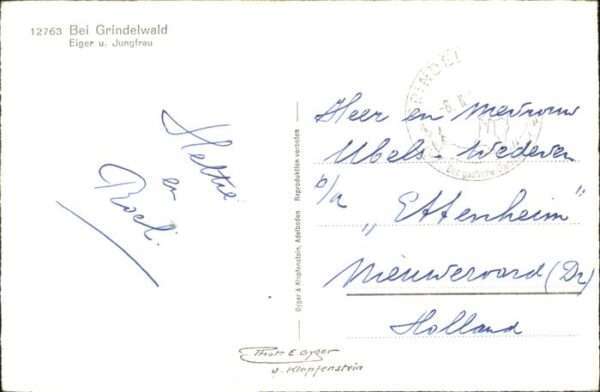 12763 Bei Grindelwald
Eiger u. Jungfrau
Hettie
en
Roel.
Gyger & Klopfenstein, Adelboden Reproduktion verboten
GRINDEL
Heer en Mevrouw
Ubels-Wedeven
p/a "Ettenheim"
Nieuweroord (Dr)
Holland
Phot. E. Gyger
u. Klopfenstein